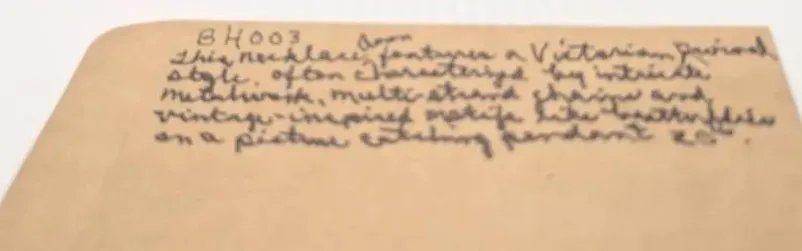 BH003
This necklace features a Victorian
style, often characterized by intricate
metalwork, multi-strand chains and
vintage-inspired motifs like
on a picture pendant